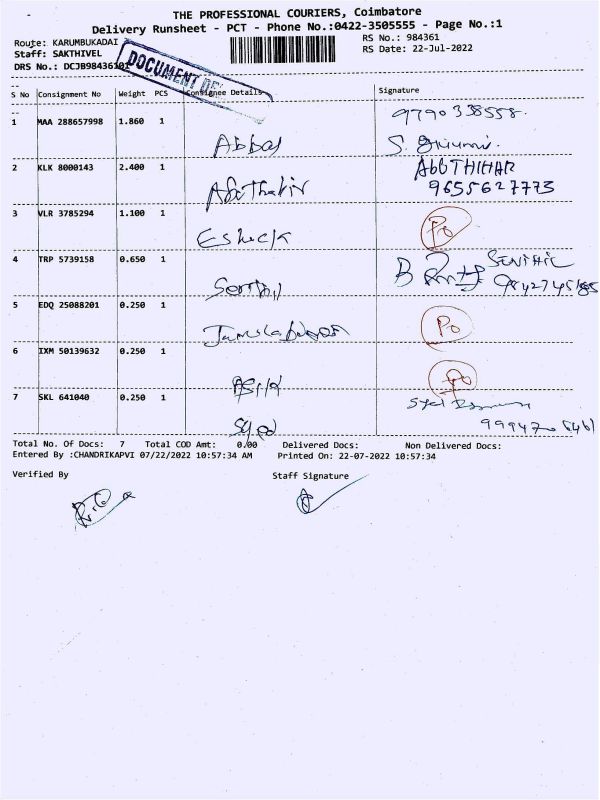 THE PROFESSIONAL COURIERS, Coimbatore
Delivery Runsheet - PCT - Phone No.:0422-3505555 - Page No.:1
Route: KARUMBUKADAI
RS No.: 984361
Staff: SAKTHIVEL
RS Date: 22-Jul-2022
DRS No.: DCJB98436101
DOCUMENT DE
S No Consignment No Weight PCS Consignee Details Signature
1 MAA 288657998 1.860 1 Abbas 9790338558.
2 KLK 8000143 2.400 1 AbbTHIHAR
9655627773
3 VLR 3785294 1.100 1 Esheck Po
4 TRP 5739158 0.650 1 Senthil SENTHIL
9842745185
5 EDQ 25088201 0.250 1 Po
6 IXM 50139632 0.250 1 Po
7 SKL 641040 0.250 1 Syed Syed
Total No. Of Docs: 7 Total COD Amt: 0.00 Delivered Docs: Non Delivered Docs:
Entered By :CHANDRIKAPVI 07/22/2022 10:57:34 AM Printed On: 22-07-2022 10:57:34
Verified By Staff Signature